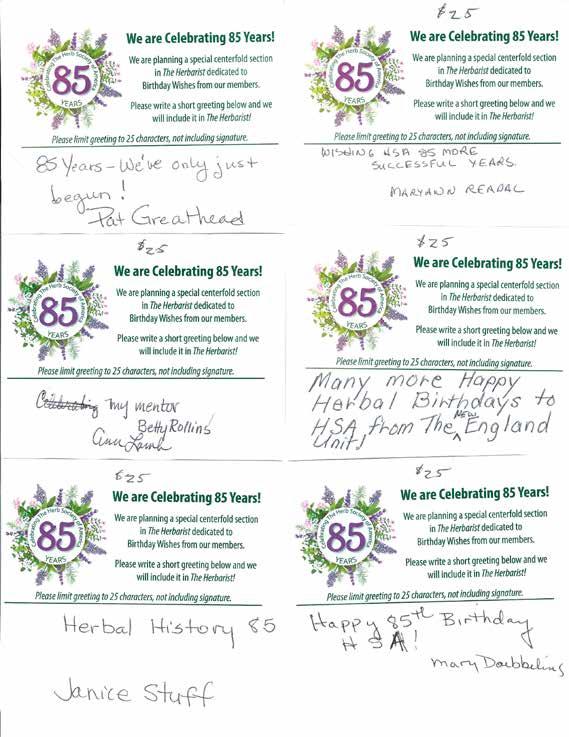 Celebrating The Herb Society of America
85
YEARS
We are Celebrating 85 Years!
We are planning a special centerfold section
in The Herbarist dedicated to
Birthday Wishes from our members.
Please write a short greeting below and we
will include it in The Herbarist!
Please limit greeting to 25 characters, not including signature.
85 Years - We've only just
begun!
Pat Greathead
$25
Celebrating The Herb Society of America
85
YEARS
We are Celebrating 85 Years!
We are planning a special centerfold section
in The Herbarist dedicated to
Birthday Wishes from our members.
Please write a short greeting below and we
will include it in The Herbarist!
Please limit greeting to 25 characters, not including signature.
WISHING HSA 85 MORE
SUCCESSFUL YEARS.
MARYANN READAL
$25
Celebrating The Herb Society of America
85
YEARS
We are Celebrating 85 Years!
We are planning a special centerfold section
in The Herbarist dedicated to
Birthday Wishes from our members.
Please write a short greeting below and we
will include it in The Herbarist!
Please limit greeting to 25 characters, not including signature.
Celebrating my mentor
Betty Rollins
Ann Lamb
$25
Celebrating The Herb Society of America
85
YEARS
We are Celebrating 85 Years!
We are planning a special centerfold section
in The Herbarist dedicated to
Birthday Wishes from our members.
Please write a short greeting below and we
will include it in The Herbarist!
Please limit greeting to 25 characters, not including signature.
Many more Happy
Herbal Birthdays to
HSA from The NEW England
Unit!
$25
Celebrating The Herb Society of America
85
YEARS
We are Celebrating 85 Years!
We are planning a special centerfold section
in The Herbarist dedicated to
Birthday Wishes from our members.
Please write a short greeting below and we
will include it in The Herbarist!
Please limit greeting to 25 characters, not including signature.
Herbal History 85
Janice Stuff
$25
Celebrating The Herb Society of America
85
YEARS
We are Celebrating 85 Years!
We are planning a special centerfold section
in The Herbarist dedicated to
Birthday Wishes from our members.
Please write a short greeting below and we
will include it in The Herbarist!
Please limit greeting to 25 characters, not including signature.
Happy 85th Birthday
HSA!
Mary Doebbeling